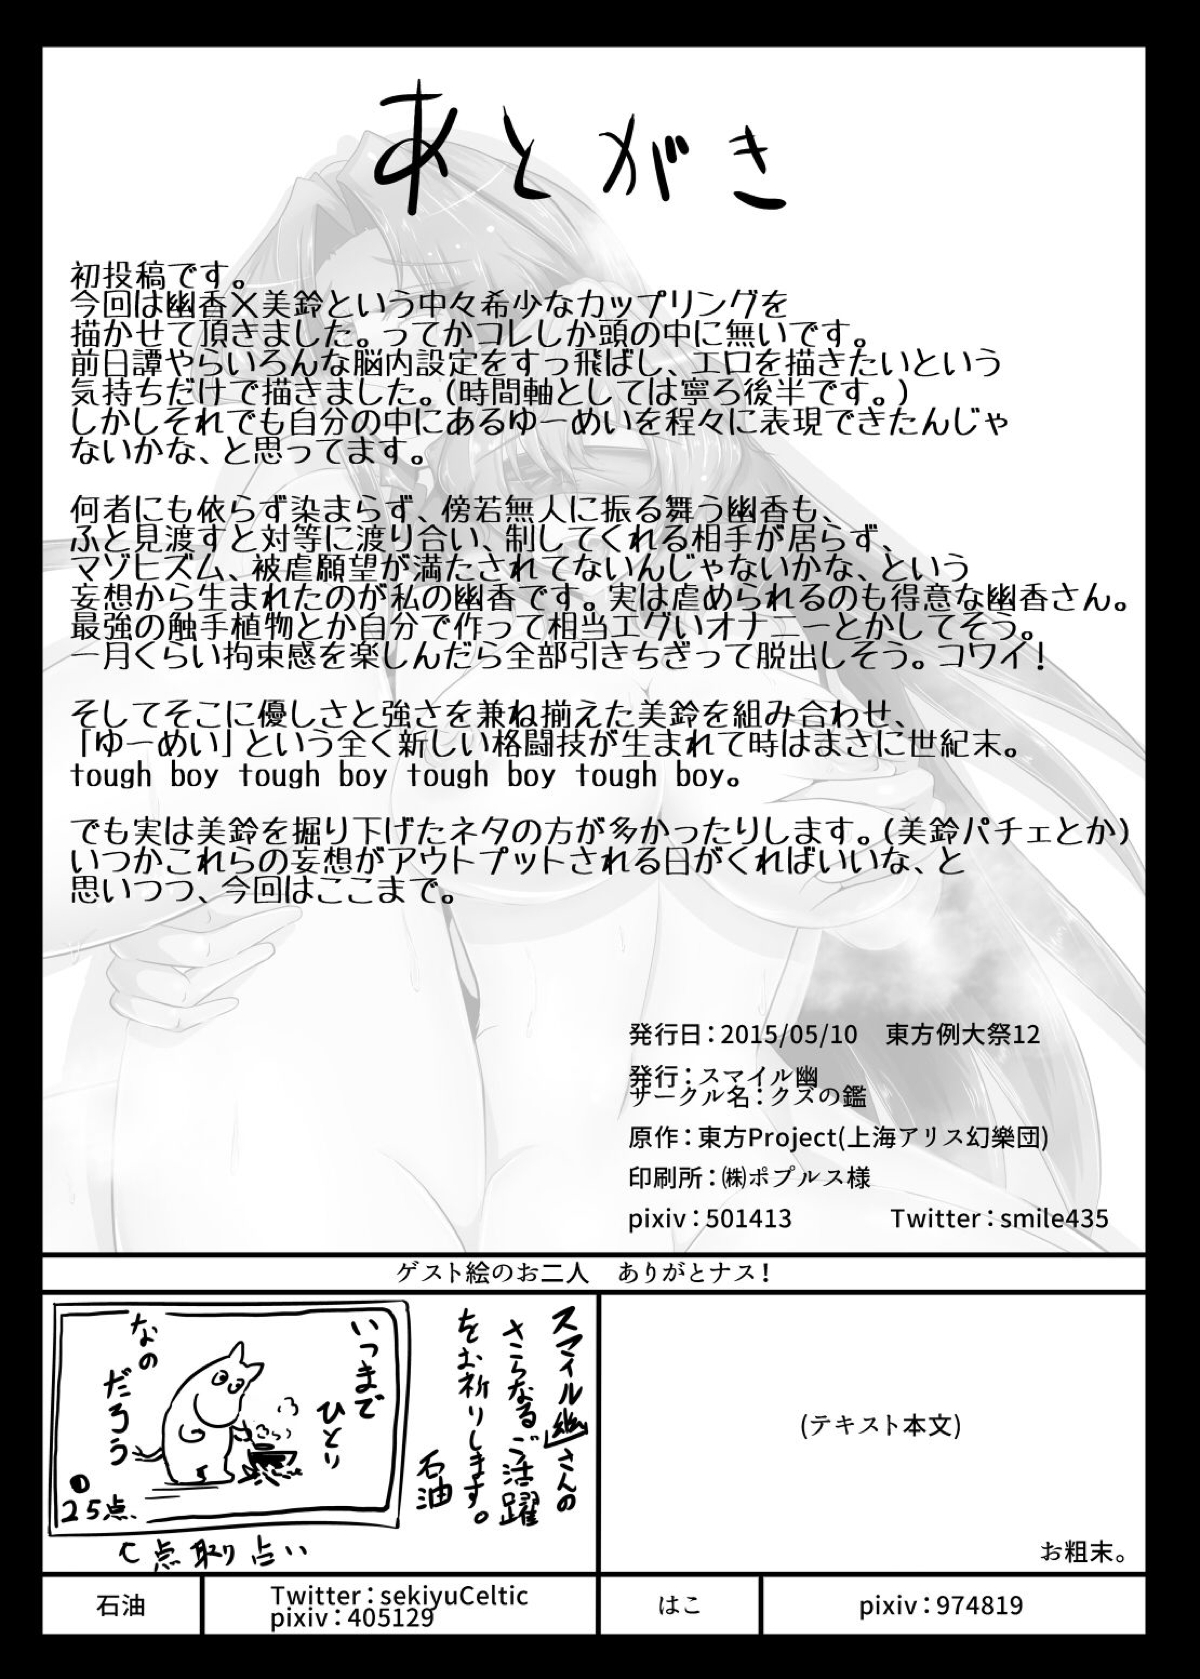 あとがき
初投稿です。
今回は幽香×美鈴という中々希少なカップリングを
描かせて頂きました。ってかコレしか頭の中に無いです。
前日譚やらいろんな脳内設定をすっ飛ばし、エロを描きたいという
気持ちだけで描きました。(時間軸としては寧ろ後半です。)
しかしそれでも自分の中にあるゆーめいを程々に表現できたんじゃ
ないかな、と思ってます。
何者にも依らず染まらず、傍若無人に振る舞う幽香も、
ふと見渡すと対等に渡り合い、制してくれる相手が居らず、
マゾヒズム、被虐願望が満たされてないんじゃないかな、という
妄想から生まれたのが私の幽香です。実は虐められるのも得意な幽香さん。
最強の触手植物とか自分で作って相当エグいオナニーとかしてそう。
一月くらい拘束感を楽しんだら全部引きちぎって脱出しそう。コワイ!
そしてそこに優しさと強さを兼ね揃えた美鈴を組み合わせ、
「ゆーめい」という全く新しい格闘技が生まれて時はまさに世紀末。
tough boy tough boy tough boy tough boy。
でも実は美鈴を掘り下げたネタの方が多かったりします。(美鈴パチェとか)
いつかこれらの妄想がアウトプットされる日がくればいいな、と
思いつつ、今回はここまで。
発行日:2015/05/10 東方例大祭12
発行:スマイル幽
サークル名:クズの鑑
原作:東方Project(上海アリス幻樂団)
印刷所:㈱ポプルス様
pixiv:501413 Twitter:smile435
ゲスト絵のお二人 ありがとナス!
スマイル幽さんの
さらなるご活躍
をお祈りします。
石油
いつまで
ひとり
なの
だろう
●25点、
点取り占い
(テキスト本文)
お粗末。
石油
Twitter:sekiyuCeltic
pixiv:405129
はこ
pixiv:974819